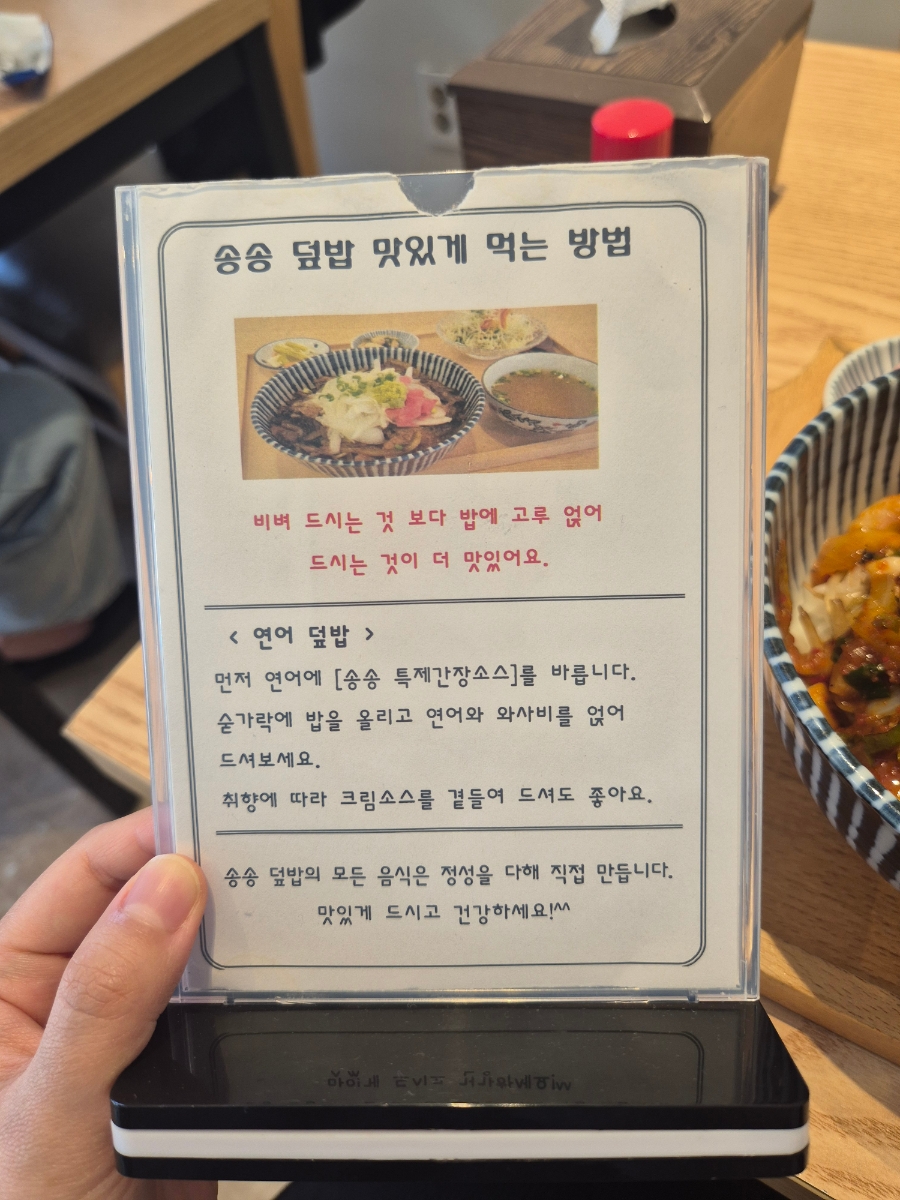 송송 덮밥 맛있게 먹는 방법
비벼 드시는 것 보다 밥에 고루 얹어
드시는 것이 더 맛있어요.
< 연어 덮밥 >
먼저 연어에 [송송 특제간장소스]를 바릅니다.
숟가락에 밥을 올리고 연어와 와사비를 얹어
드셔보세요.
취향에 따라 크림소스를 곁들여 드셔도 좋아요.
송송 덮밥의 모든 음식은 정성을 다해 직접 만듭니다.
맛있게 드시고 건강하세요!^^